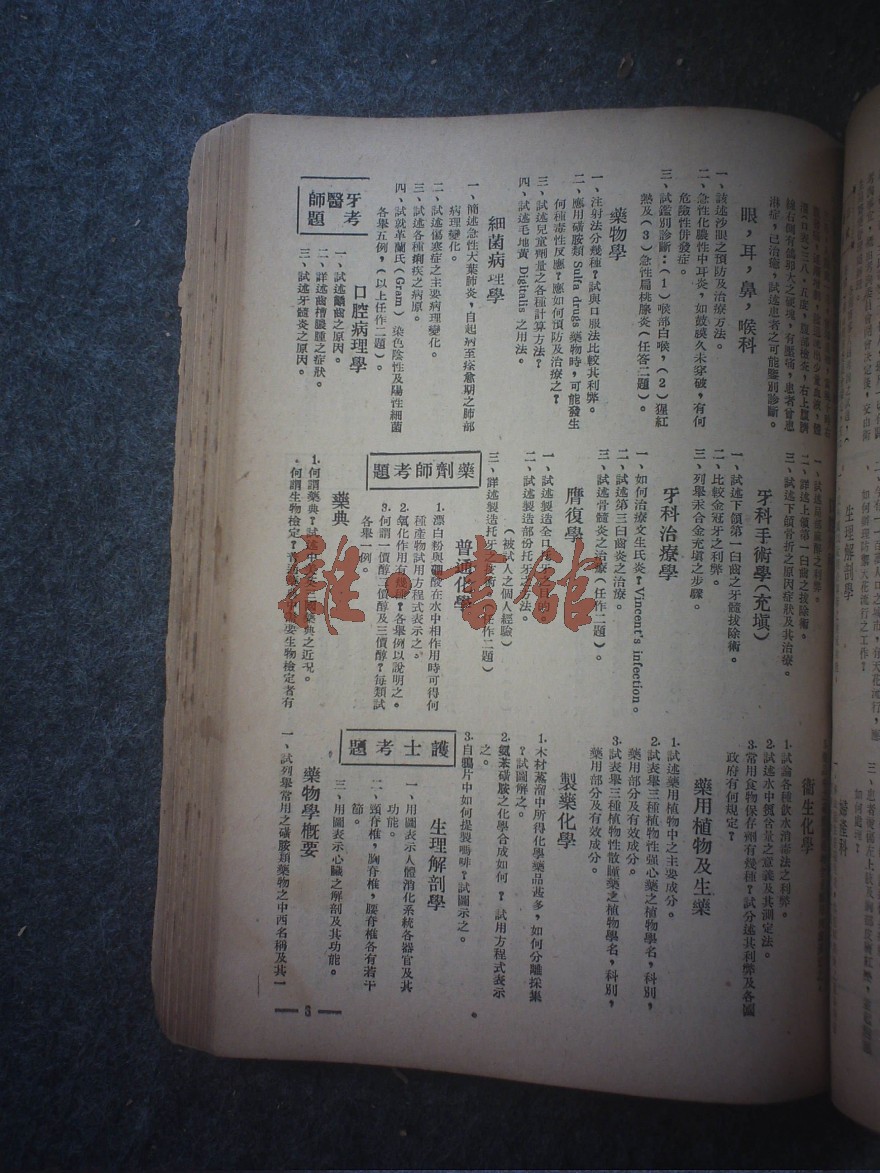 眼，耳，鼻，喉科
一、該述沙眼之預防及治療方法。
二、急性化膿性中耳炎，如鼓膜久未穿破，有何
危險性併發症。
三、試鑑別診斷：（1）喉部白喉，（2）猩紅
熱及（3）急性扁桃腺炎（任答二題）。
藥物學
一、注射法分幾種？試與口服法比較其利弊。
二、應用磺胺類 Sulfa drugs 藥物時，可能發生
何種毒性反應？應如何預防及治療之？
三、試述兒童劑量之各種計算方法？
四、試述毛地黃 Digitalis 之用法。
細菌病理學
一、簡述急性大葉肺炎，自起病至痊愈期之肺部
病理變化。
二、試述傷寒症之主要病理變化。
三、試述各種痢疾之病原。
四、試就革蘭氏（Gram）染色陰性及陽性細菌
各舉五例，（以上任作二題）。
牙醫師考題
口腔病理學
一、試述齲齒之原因。
二、詳述齒槽膿腫之症狀。
三、試述牙髓炎之原因。
二、詳述上頜第一臼齒之拔除術。
三、試述下頜骨折之原因症狀及其治療。
牙科手術學（充填）
一、試述下頜第一臼齒之牙髓拔除術。
二、比較金冠牙之利弊。
三、列舉汞合金充填之步驟。
牙科治療學
一、如何治療文生氏炎？Vincent's infection。
二、試述第三臼齒炎之治療。
三、試述骨髓炎之治療（任作二題）。
膺復學
一、試述製造全口托牙之
二、試述製造部份托牙之
（被試人之個人經驗）
三、詳述製造托牙之 技術（任作二題）
藥劑師考題
普通化學
1.漂白粉與硼酸在水中相作用時可得何
種產物試用方程式表示之。
2.氧化作用有幾種？各舉例以說明之。
3.何謂一價醇二價醇及三價醇？每類試
各舉一例。
藥典
1.何謂藥典？試述中 藥典之近況。
何謂生物檢定？ 要生物檢定者有
衛生化學
1.試論各種飲水消毒法之利弊。
2.試述水中氮含量之意義及其測定法。
3.常用食物保存劑有幾種？試分述其利弊及各國
政府有何規定？
藥用植物及生藥
1.試述藥用植物中之主要成分。
2.試表舉三種植物性強心藥之植物學名，科別，
藥用部分及有效成分。
3.試表舉三種植物性散瞳藥之植物學名，科別，
藥用部分及有效成分。
製藥化學
1.木材蒸溜中所得化學藥品甚多，如何分離採集
？試圖解之。
2.氨苯磺胺之化學合成如何？試用方程式表示
之。
3.自鴉片中如何提製嗎啡？試圖示之。
護士考題
生理解剖學
一、用圖表示人體消化系統各器官及其
功能。
二、頸脊椎，胸脊椎，腰脊椎各有若干
節。
三、用圖表示心臟之解剖及其功能。
藥物學概要
一、試列舉常用之磺胺類藥物之中西名稱及其一
3
生理解剖學
婦產科
雅・書館